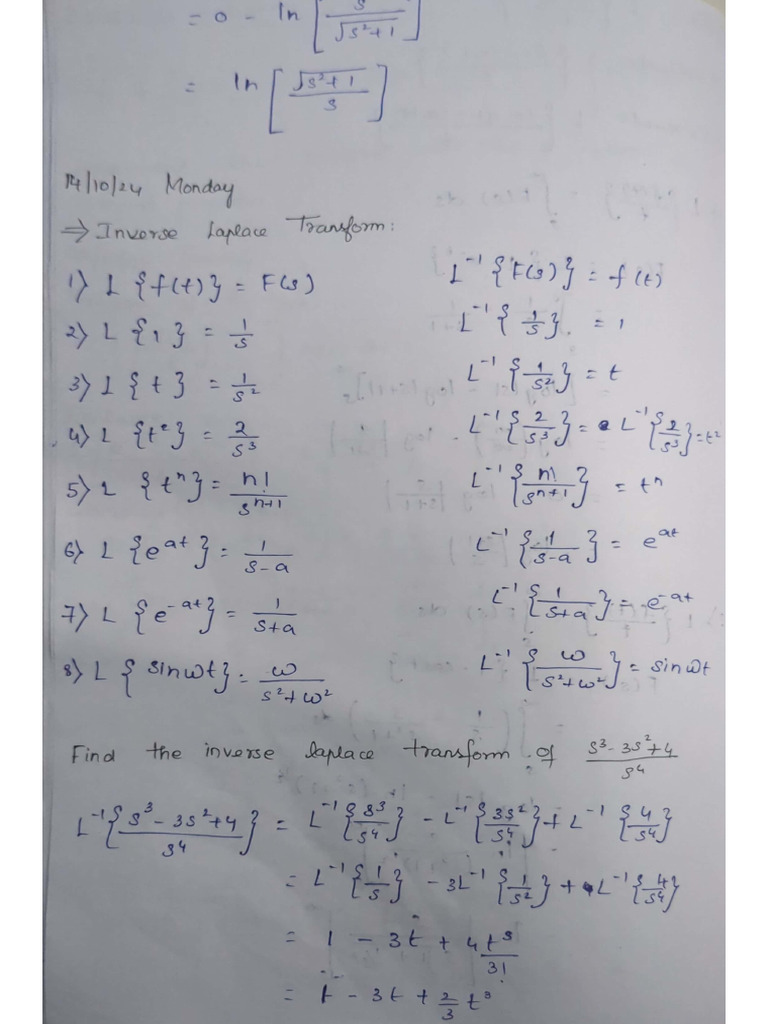 = 0 - ln [ s / √s²+1 ]
= ln [ √s²+1 / s ]
14/10/24 Monday
⇒ Inverse Laplace Transform:
1) L {f(t)} = F(s) L⁻¹ {F(s)} = f(t)
2) L {1} = 1/s L⁻¹ {1/s} = 1
3) L {t} = 1/s² L⁻¹ {1/s²} = t
4) L {t²} = 2/s³ L⁻¹ {2/s³} = L⁻¹ {2/s³} = t²
5) L {tⁿ} = n!/sⁿ⁺¹ L⁻¹ {n!/sⁿ⁺¹} = tⁿ
6) L {e^at} = 1/s-a L⁻¹ {1/s-a} = e^at
7) L {e^-at} = 1/s+a L⁻¹ {1/s+a} = e^-at
8) L {sinωt} = ω/s²+ω² L⁻¹ {ω/s²+ω²} = sinωt
Find the inverse laplace transform of s³-3s²+4/s⁴
L⁻¹ {s³-3s²+4/s⁴} = L⁻¹ {s³/s⁴} - L⁻¹ {3s²/s⁴} + L⁻¹ {4/s⁴}
= L⁻¹ {1/s} - 3L⁻¹ {1/s²} + L⁻¹ {4/s⁴}
= 1 - 3t + 4t³/3!
= 1 - 3t + 2/3 t³